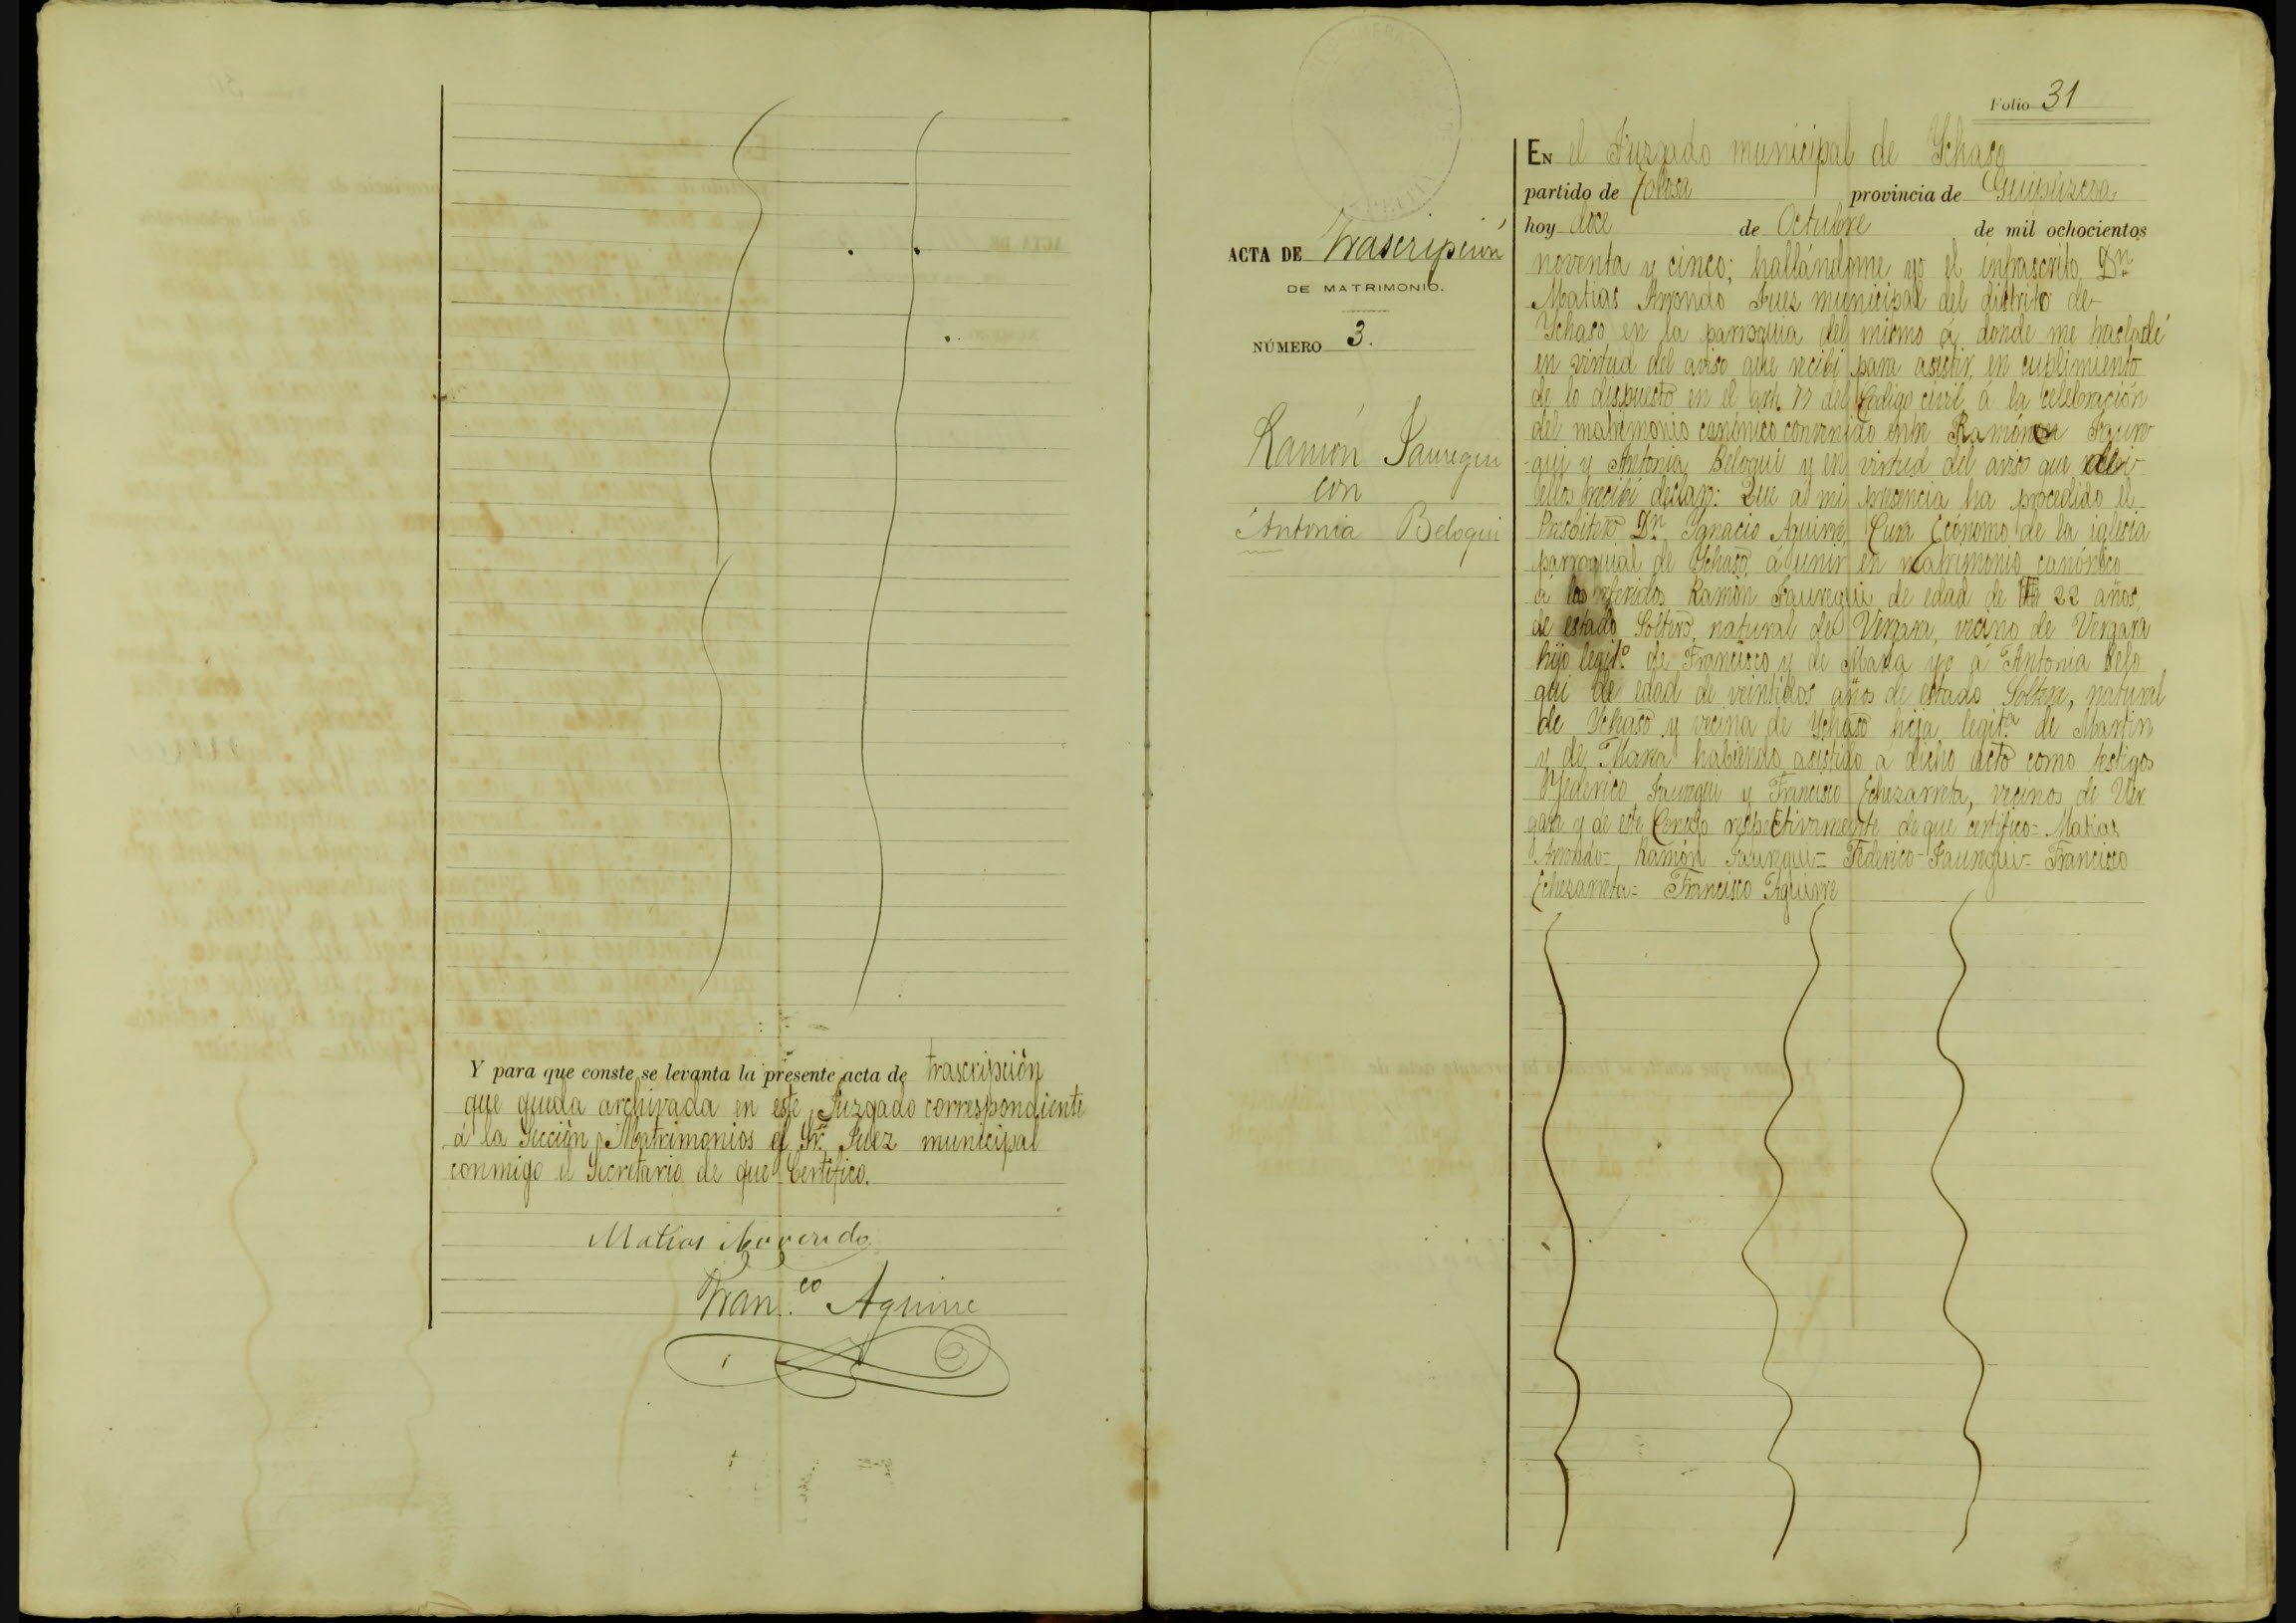 Y para que conste se levanta la presente acta de trascripción
que queda archivada en este Juzgado correspondiente
á la Sección Matrimonios el Sr. Juez municipal
conmigo el Secretario de que Certifico.
Matias Arrondo
Fran.co Aguirre
Folio 31
ACTA DE Trascripción
DE MATRIMONIO.
NÚMERO 3.
Ramón Jauregui
con
Antonia Beloqui
EN el Juzgado municipal de Ychaso
partido de Tolosa provincia de Guipúzcoa
hoy doce de Octubre de mil ochocientos
noventa y cinco; hallándome yo el infrascrito Dn
Matias Arrondo Juez municipal del distrito de
Ychaso en la parroquia del mismo á donde me trasladé
en virtud del aviso que recibí para asistir, en cuplimiento
de lo dispuesto en el art. 77 del Código civil, á la celebración
del matrimonio canónico convenido entre Ramón Jaure
gui y Antonia Beloqui y en virtud del aviso que de
ellos recibí declaro: Que a mi presencia ha procedido el
Presbitero Dn Ygnacio Aguirre Cura Ecónomo de la iglesia
parroquial de Ychaso, á unir en matrimonio canónico
á los referidos Ramón Jauregui de edad de 22 años,
de estado Soltero, natural de Vergara, vecino de Vergara
hijo legit.o de Francisco y de Maria y á Antonia Belo
qui de edad de veintidos años de estado Soltera, natural
de Ychaso y vecina de Ychaso hija legit.a de Martin
y de Maria habiendo asistido á dicho acto como testigos
Federico Jauregui y Francisco Echezarreta, vecinos de Ver
gara y de este Concejo respectivamente de que certifico= Matias
Arrondo= Ramón Jauregui= Federico Jauregui= Francisco
Echezarreta= Francisco Aguirre